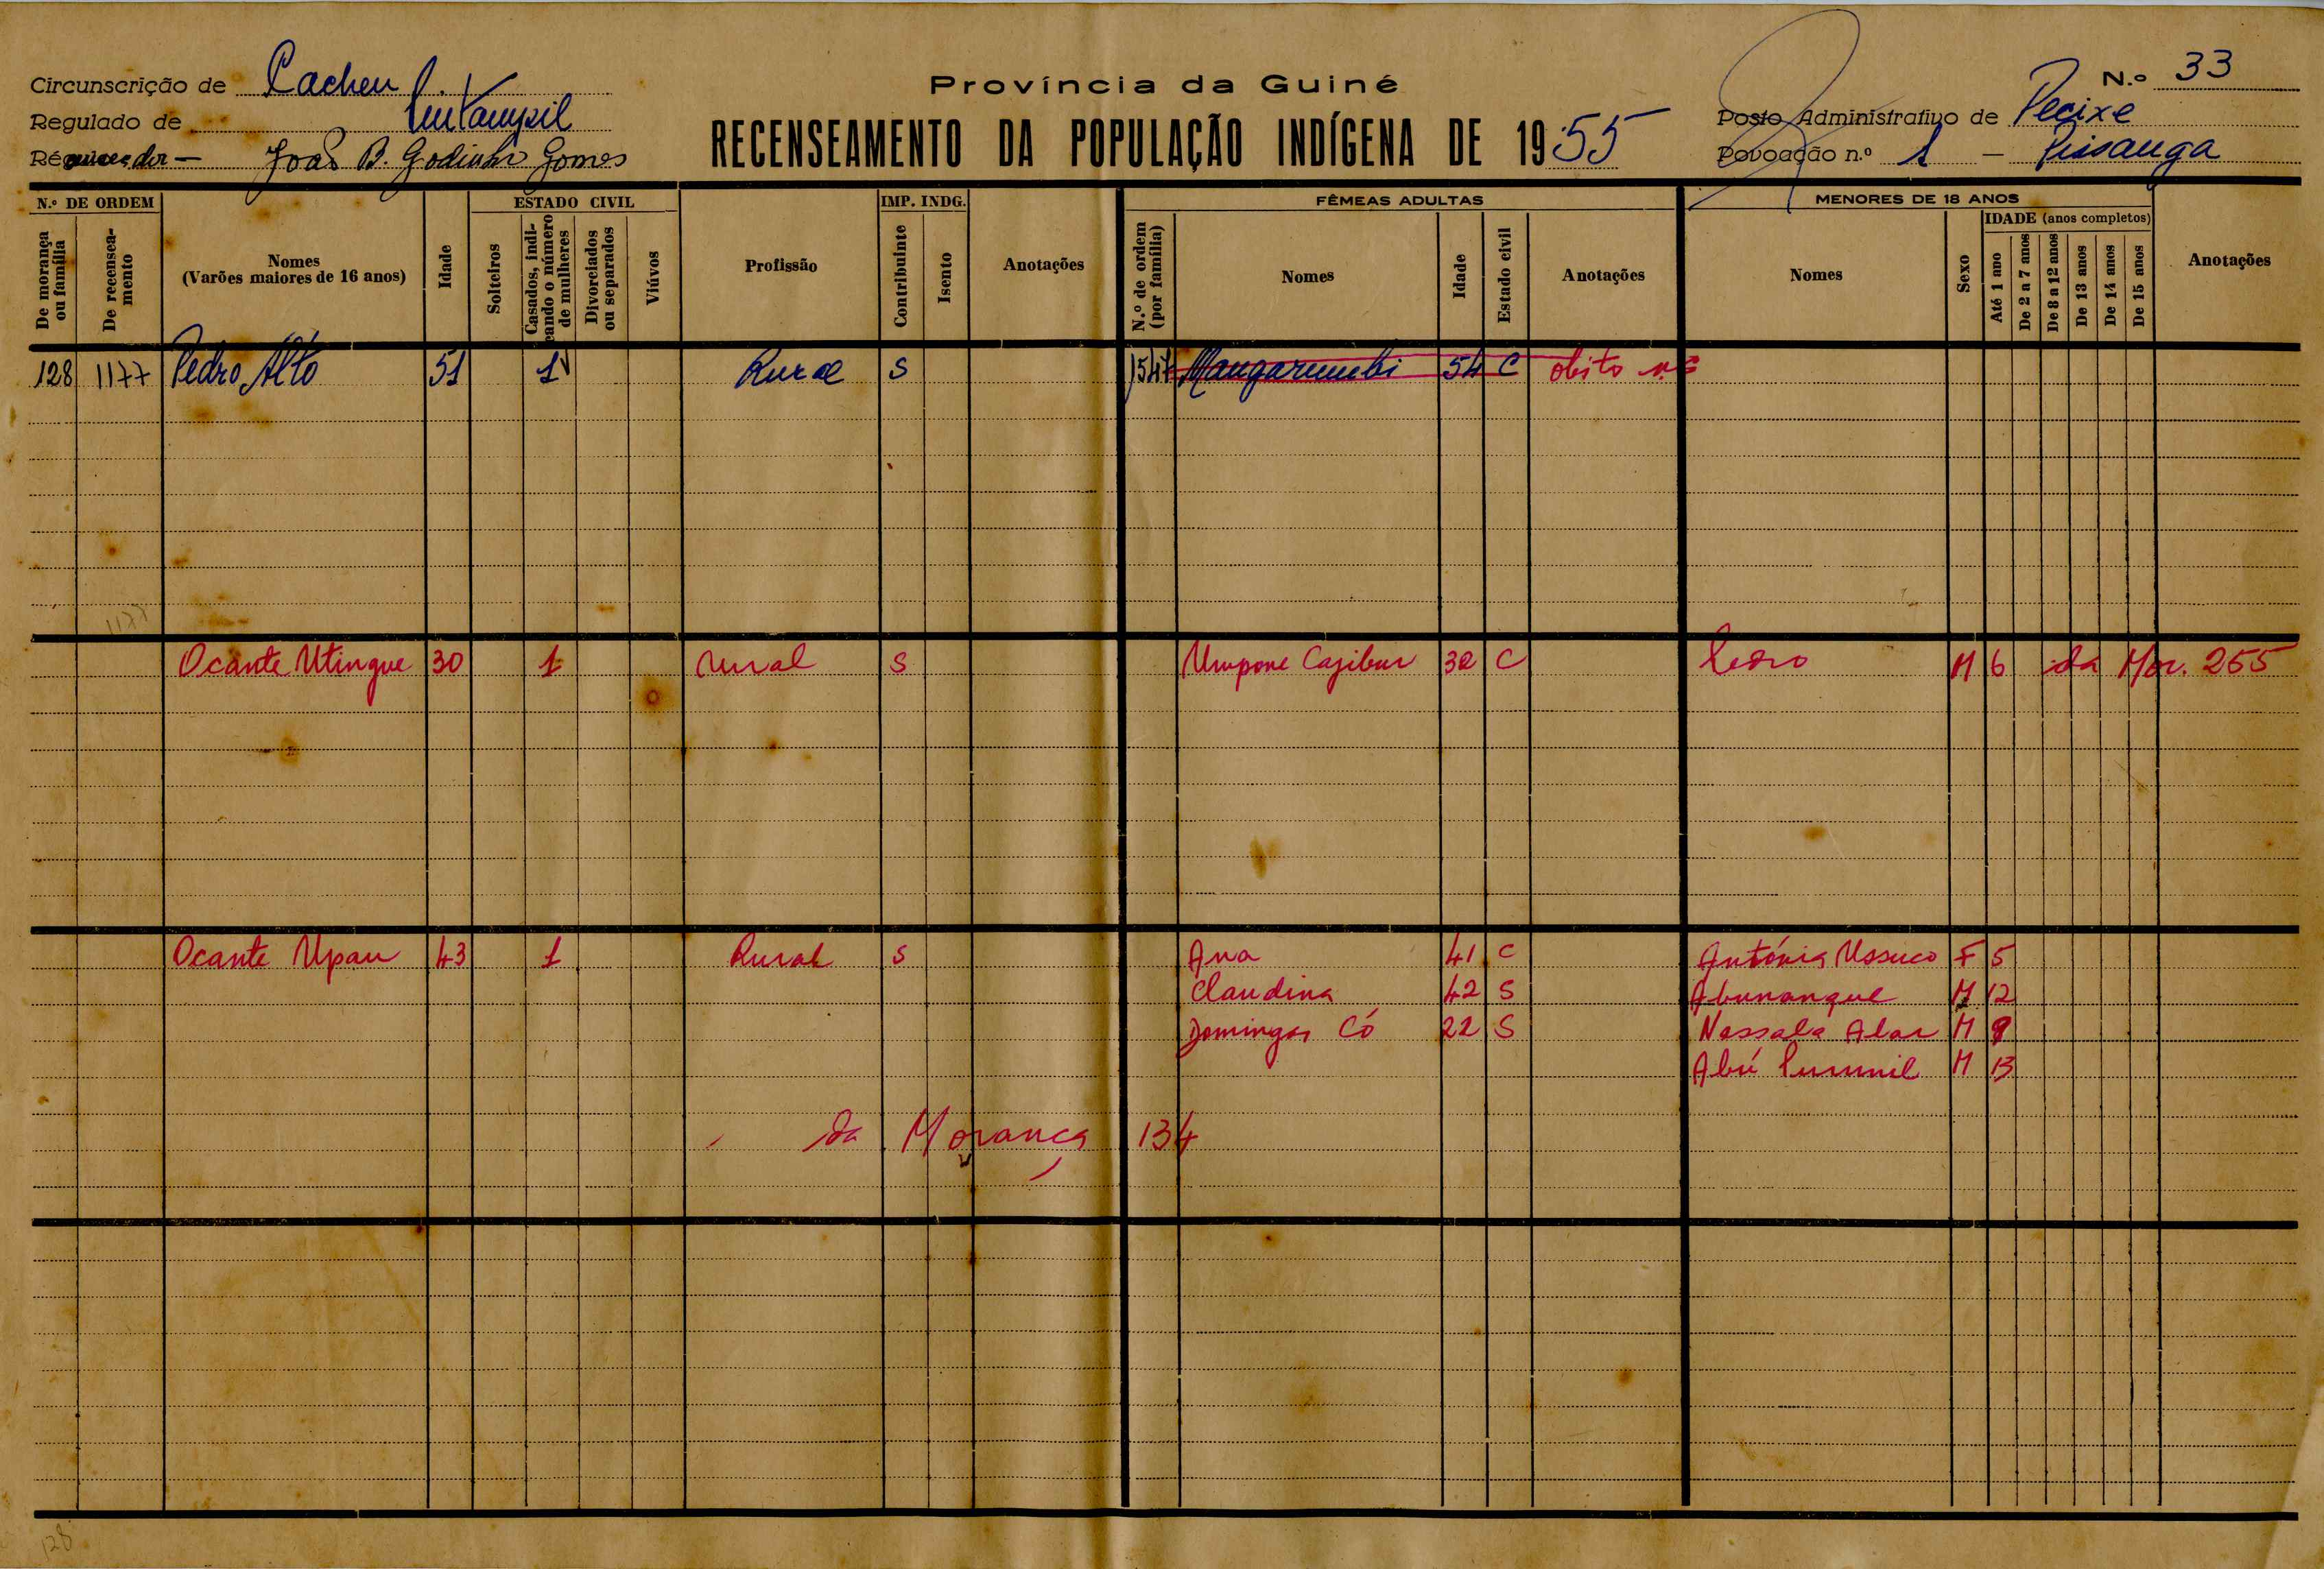 Circunscrição de Cacheu
Província da Guiné
N.º 33
Regulado de
Posto Administrativo de Pecixe
RECENSEAMENTO DA POPULAÇÃO INDÍGENA DE 1955
João B. Godinho Gomes
Povoação n.º 1 — Pissanga
N.º DE ORDEM
ESTADO CIVIL
IMP. INDG.
FÊMEAS ADULTAS
MENORES DE 18 ANOS
IDADE (anos completos)
De morança ou família
De recensea-mento
Nomes
(Varões maiores de 16 anos)
Idade
Solteiros
Casados, indi-cando o número de mulheres
Divorciados ou separados
Viúvos
Profissão
Contribuinte
Isento
Anotações
N.º de ordem (por família)
Nomes
Idade
Estado civil
Anotações
Nomes
Sexo
Até 1 ano
De 2 a 7 anos
De 8 a 12 anos
De 13 anos
De 14 anos
De 15 anos
Anotações
128 1177 Pedro Alto 51 1 Rural S Mangarumbi 54 C obito
1177
Ocante Utingue 30 1 rural S Umpone Cajibur 32 C Pedro M 6 da Mor. 255
Ocante Upau 43 1 Rural S Ana 41 C António Ussuco F 5
Claudina 42 S Abunanque M 12
Domingas Có 22 S Nassala Alar M 9
Abú M 13
da Morança 134
128